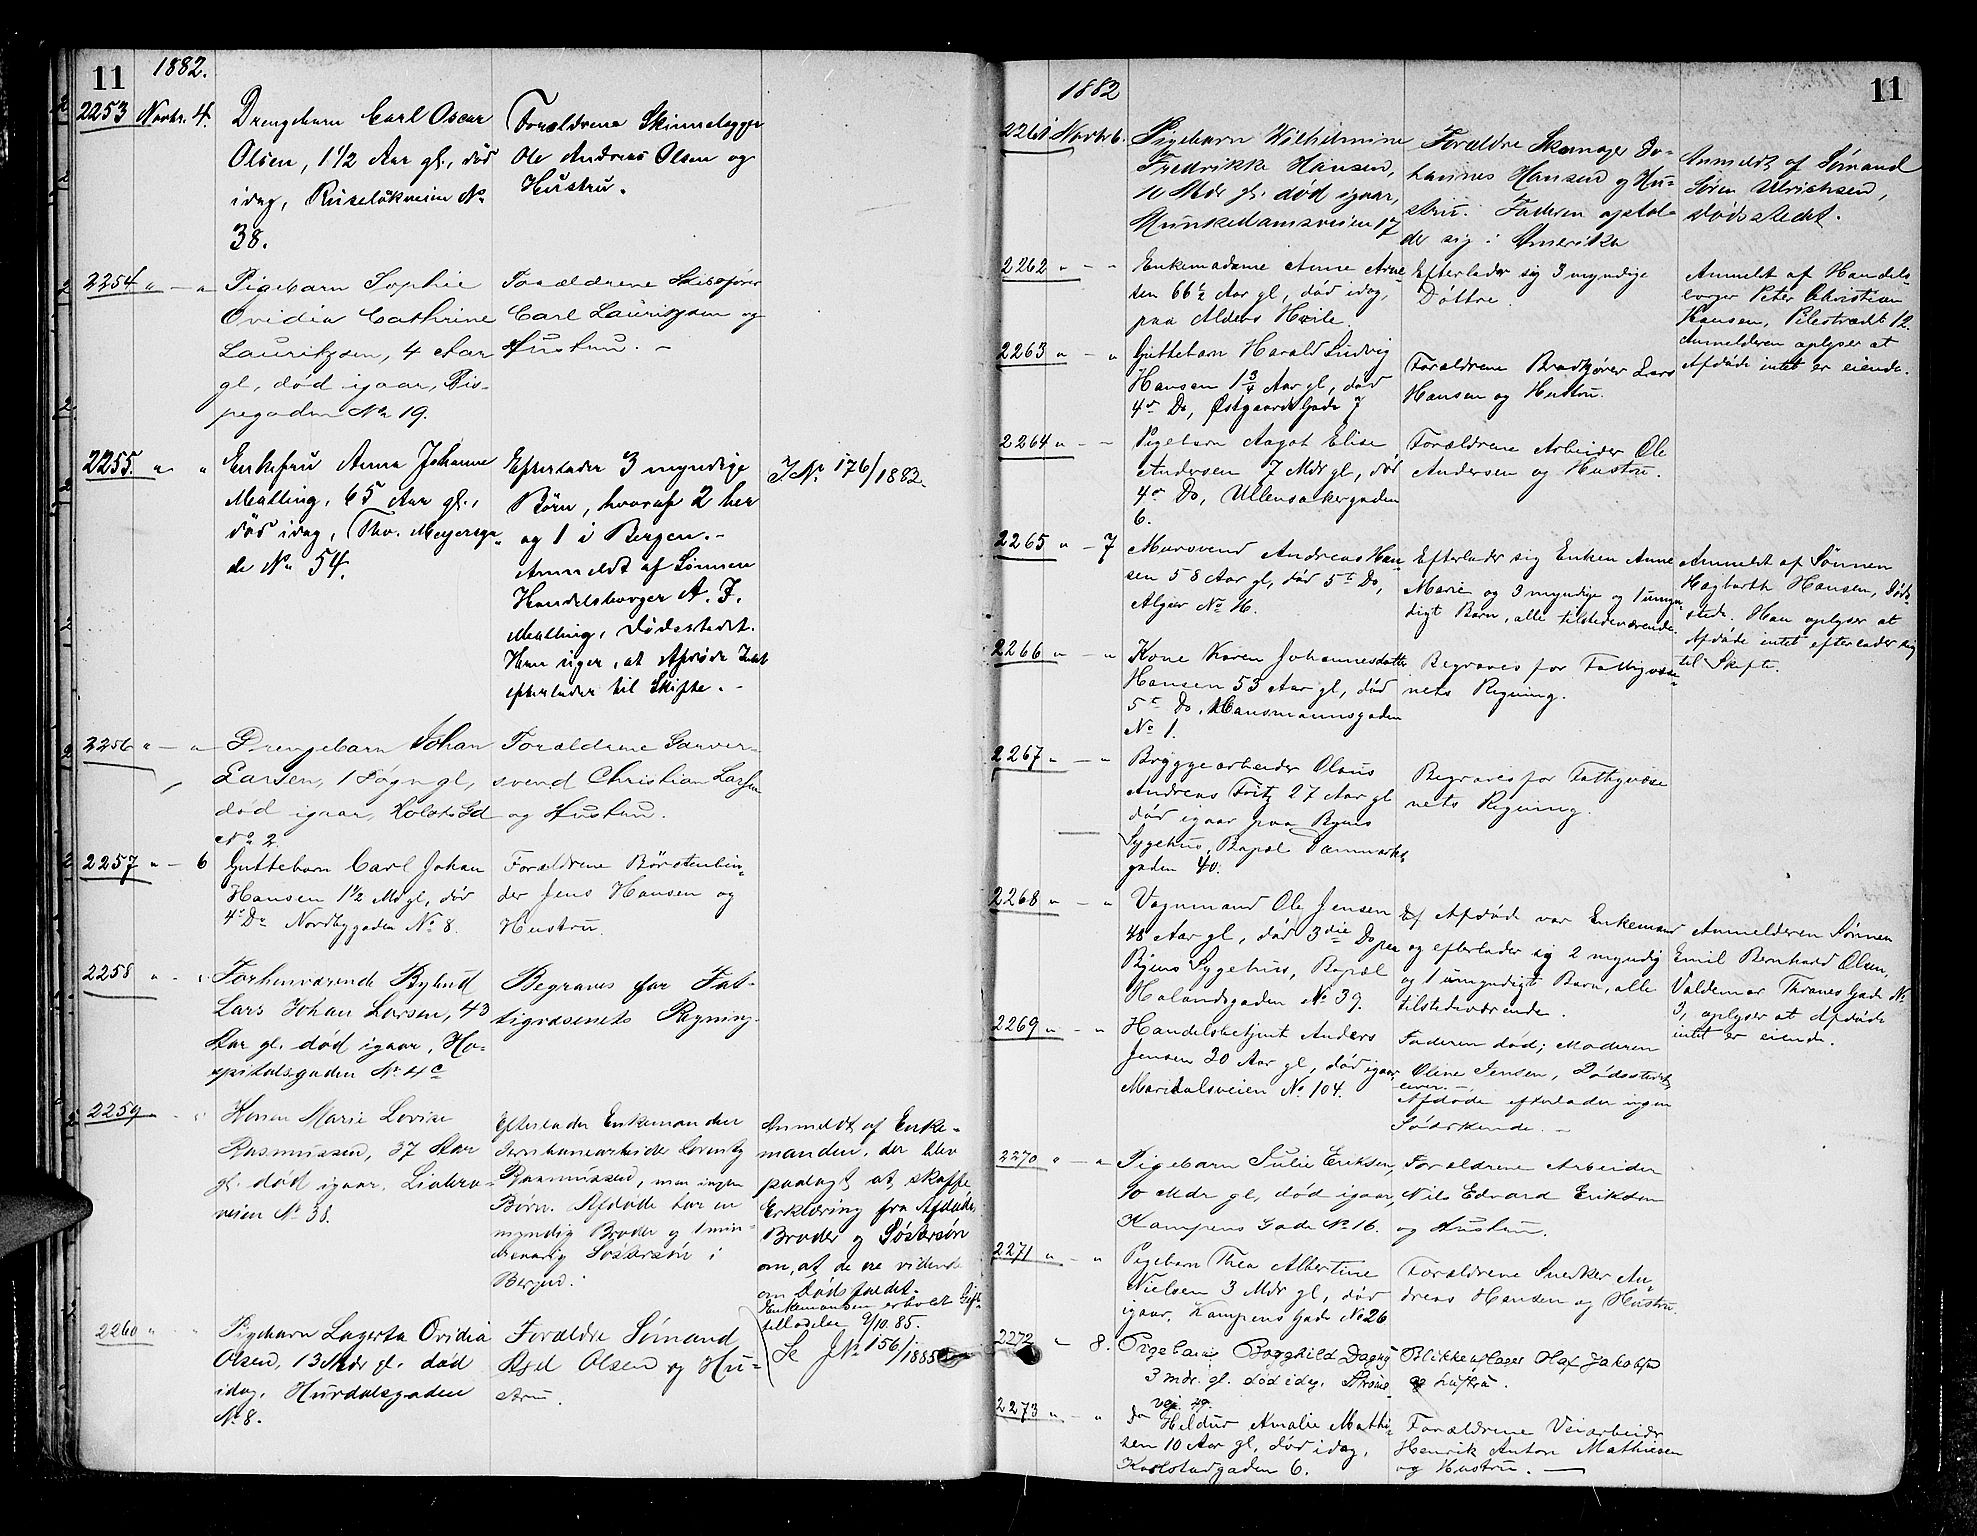 11
1882.
2253 Novbr. 4.
Drengebarn Carl Oscar
Olsen, 1 1/2 Aar gl., död
idag, Ruselökveien No
38.
Forældrene Skinnelægger
Ole Andreas Olsen og
Hustru.
2254 " — "
Pigebarn Sophie
Ovidia Cathrine
Lauritzsen, 4 Aar
gl, död igaar, Ris-
pegaden No 19.
Forældrene Skibsförer
Carl Lauritzsen og
Hustru. —
2255. " "
Enkefru Anna Johanne
Malling, 65 Aar gl.,
död idag, Thv. Meyersga-
de No 54.
Efterlader 3 myndige
Börn, hvoraf 2 her
og 1 i Bergen. -
Anmeldt af Sönnen
Handelsborger A. F.
Malling, Dödsstedet.
Han siger, at Afdöde Intet
efterlader til Skifte. -
J No 176/1883.
2256 " — "
Drengebarn Johan
Larsen, 1 Dögn gl,
död igaar, Holsts Gd
No 2
Forældrene Garver-
svend Christian Larsen
og Hustru.
2257 " — 6
Guttebarn Carl Johan
Hansen 1 1/2 Md gl, död
4de Do Nordbygaden No 8.
Forældrene Börstenbin-
der Jens Hansen og
Hustru.
2258 " - "
Forhenværende Bybud
Lars Johan Larsen, 43
Aar gl. död igaar, Ho-
spitalsgaden No 4c
Begraves for Fat-
tigvæsenets Regning.
2259 - "
Konen Marie Lovise
Rasmussen, 37 Aar
gl. död igaar, Liabro-
veien No 38.
Efterlader Enkemanden
Jernbanearbeider Lorentz
Rasmussen, men ingen
Börn. Afdöde har en
myndig Broder og 1 min-
dreaarig Söstersön i
Bergen.
Anmeldt af Enke-
manden, der blev
paalagt at skaffe
Erklæring fra Afdödes
Broder og Söstersön
om, at de ere vidende
om Dödsfaldet.
Enkemanden erholdt Gifte-
tilladelse 9/10. 85.
Se J No 156/1885
2260 " "
Pigebarn Lagerta Ovidia
Olsen, 13 Mdr gl. död
idag, Hurdalsgaden
No 8.
Forældre Sömand
Axel Olsen og Hu-
stru.
1882
11
2261 Novbr 6.
Pigebarn Wilhelmine
Fredrikke Hansen,
10 Mdr gl. död igaar,
Munkedamsveien 17
Forældre Skomager Jo-
hannes Hansen og Hu-
stru. Faderen ophol-
der sig i Amerika
Anmeldt af Sömand
Sören Ulrichsen,
Dödsstedet.
2262 " - "
Enkemadame Anne Arne-
sen 66 1/2 Aar gl, död idag,
paa Alders Hvile.
Efterlader sig 3 myndige
Döttre.
Anmeldt af Handels-
borger Peter Christian
Hansen, Pilestrædet 12.
Anmelderen oplyser at
Afdöde intet er eiende.
2263 " - "
Guttebarn Harald Ludvig
Hansen 1 3/4 Aar gl, död
4de Do, Östgaards Gade 7
Forældrene Brödkjörer Lars
Hansen og Hustru.
2264 " - "
Pigebarn Aagot Elise
Andersen 7 Mdr gl, död
4de Do, Ullensakergaden
6.
Forældrene Arbeider Ole
Andersen og Hustru.
2265 " - 7
Mursvend Andreas Han-
sen 58 Aar gl, död 5te Do,
Algier No 16.
Efterlader sig Enken Anne
Marie og 3 myndige og 1 umyn-
digt Barn, alle tilstedeværende.
Anmeldt af Sönnen
Hagbarth Hansen, Döds-
stedet. Han oplyser at
Afdöde intet efterlader sig
til Skifte.
2266 " - "
Kone Karen Johannesdatter
Hansen 53 Aar gl, död
5te Do, Hausmannsgaden
No 1.
Begraves for Fattigvæse-
nets Regning.
2267 " - "
Bryggearbeider Olaus
Andreas Fritz 27 Aar gl
död igaar paa Byens
Sygehus, Bopæl Danmarks
gaden 40.
Begraves for Fattigvæse
nets Regning.
2268 " - "
Vognmand Ole Jensen
48 Aar gl, död 3die Do paa
Byens Sygehus, Bopæl
Hølandsgaden No 39.
Afdöde var Enkemand
og efterlader sig 2 myndig
og 1 umyndigt Barn, alle
tilstedeværende.
Anmelderen Sönnen
Emil Bernhard Olsen,
Valdemar Thranes Gade No
3, oplyser at Afdöde
intet er eiende.
2269 " - "
Handelsbetjent Anders
Jensen 20 Aar gl, död igaar
Maridalsveien No 104.
Faderen död; Moderen
Oline Jensen, Dödsstedet,
lever. -
Afdöde efterlader ingen
Södskende. -
2270 " - "
Pigebarn Julie Eriksen,
10 Mdr gl, död igaar,
Kampens Gade No 16.
Forældrene Arbeider
Nils Edvard Eriksen
og Hustru.
2271 " - "
Pigebarn Thea Albertine
Nielsen 3 Mdr gl, död
igaar, Kampens Gade No 26
Forældrene Snedker An-
dreas Hansen og Hustru.
2272 " 8.
Pigebarn Borghild Dagny
3 mdr. gl. död idag. Ströms-
vei. 29.
Blikkenslager Jakobsen
og Hustru.
2273 " - "
do Hildur Amalie Mathi-
sen 10 Aar gl, död idag,
Karlstadgaden 6.
Forældrene Veiarbeider
Henrik Anton Mathiesen
og Hustru. —